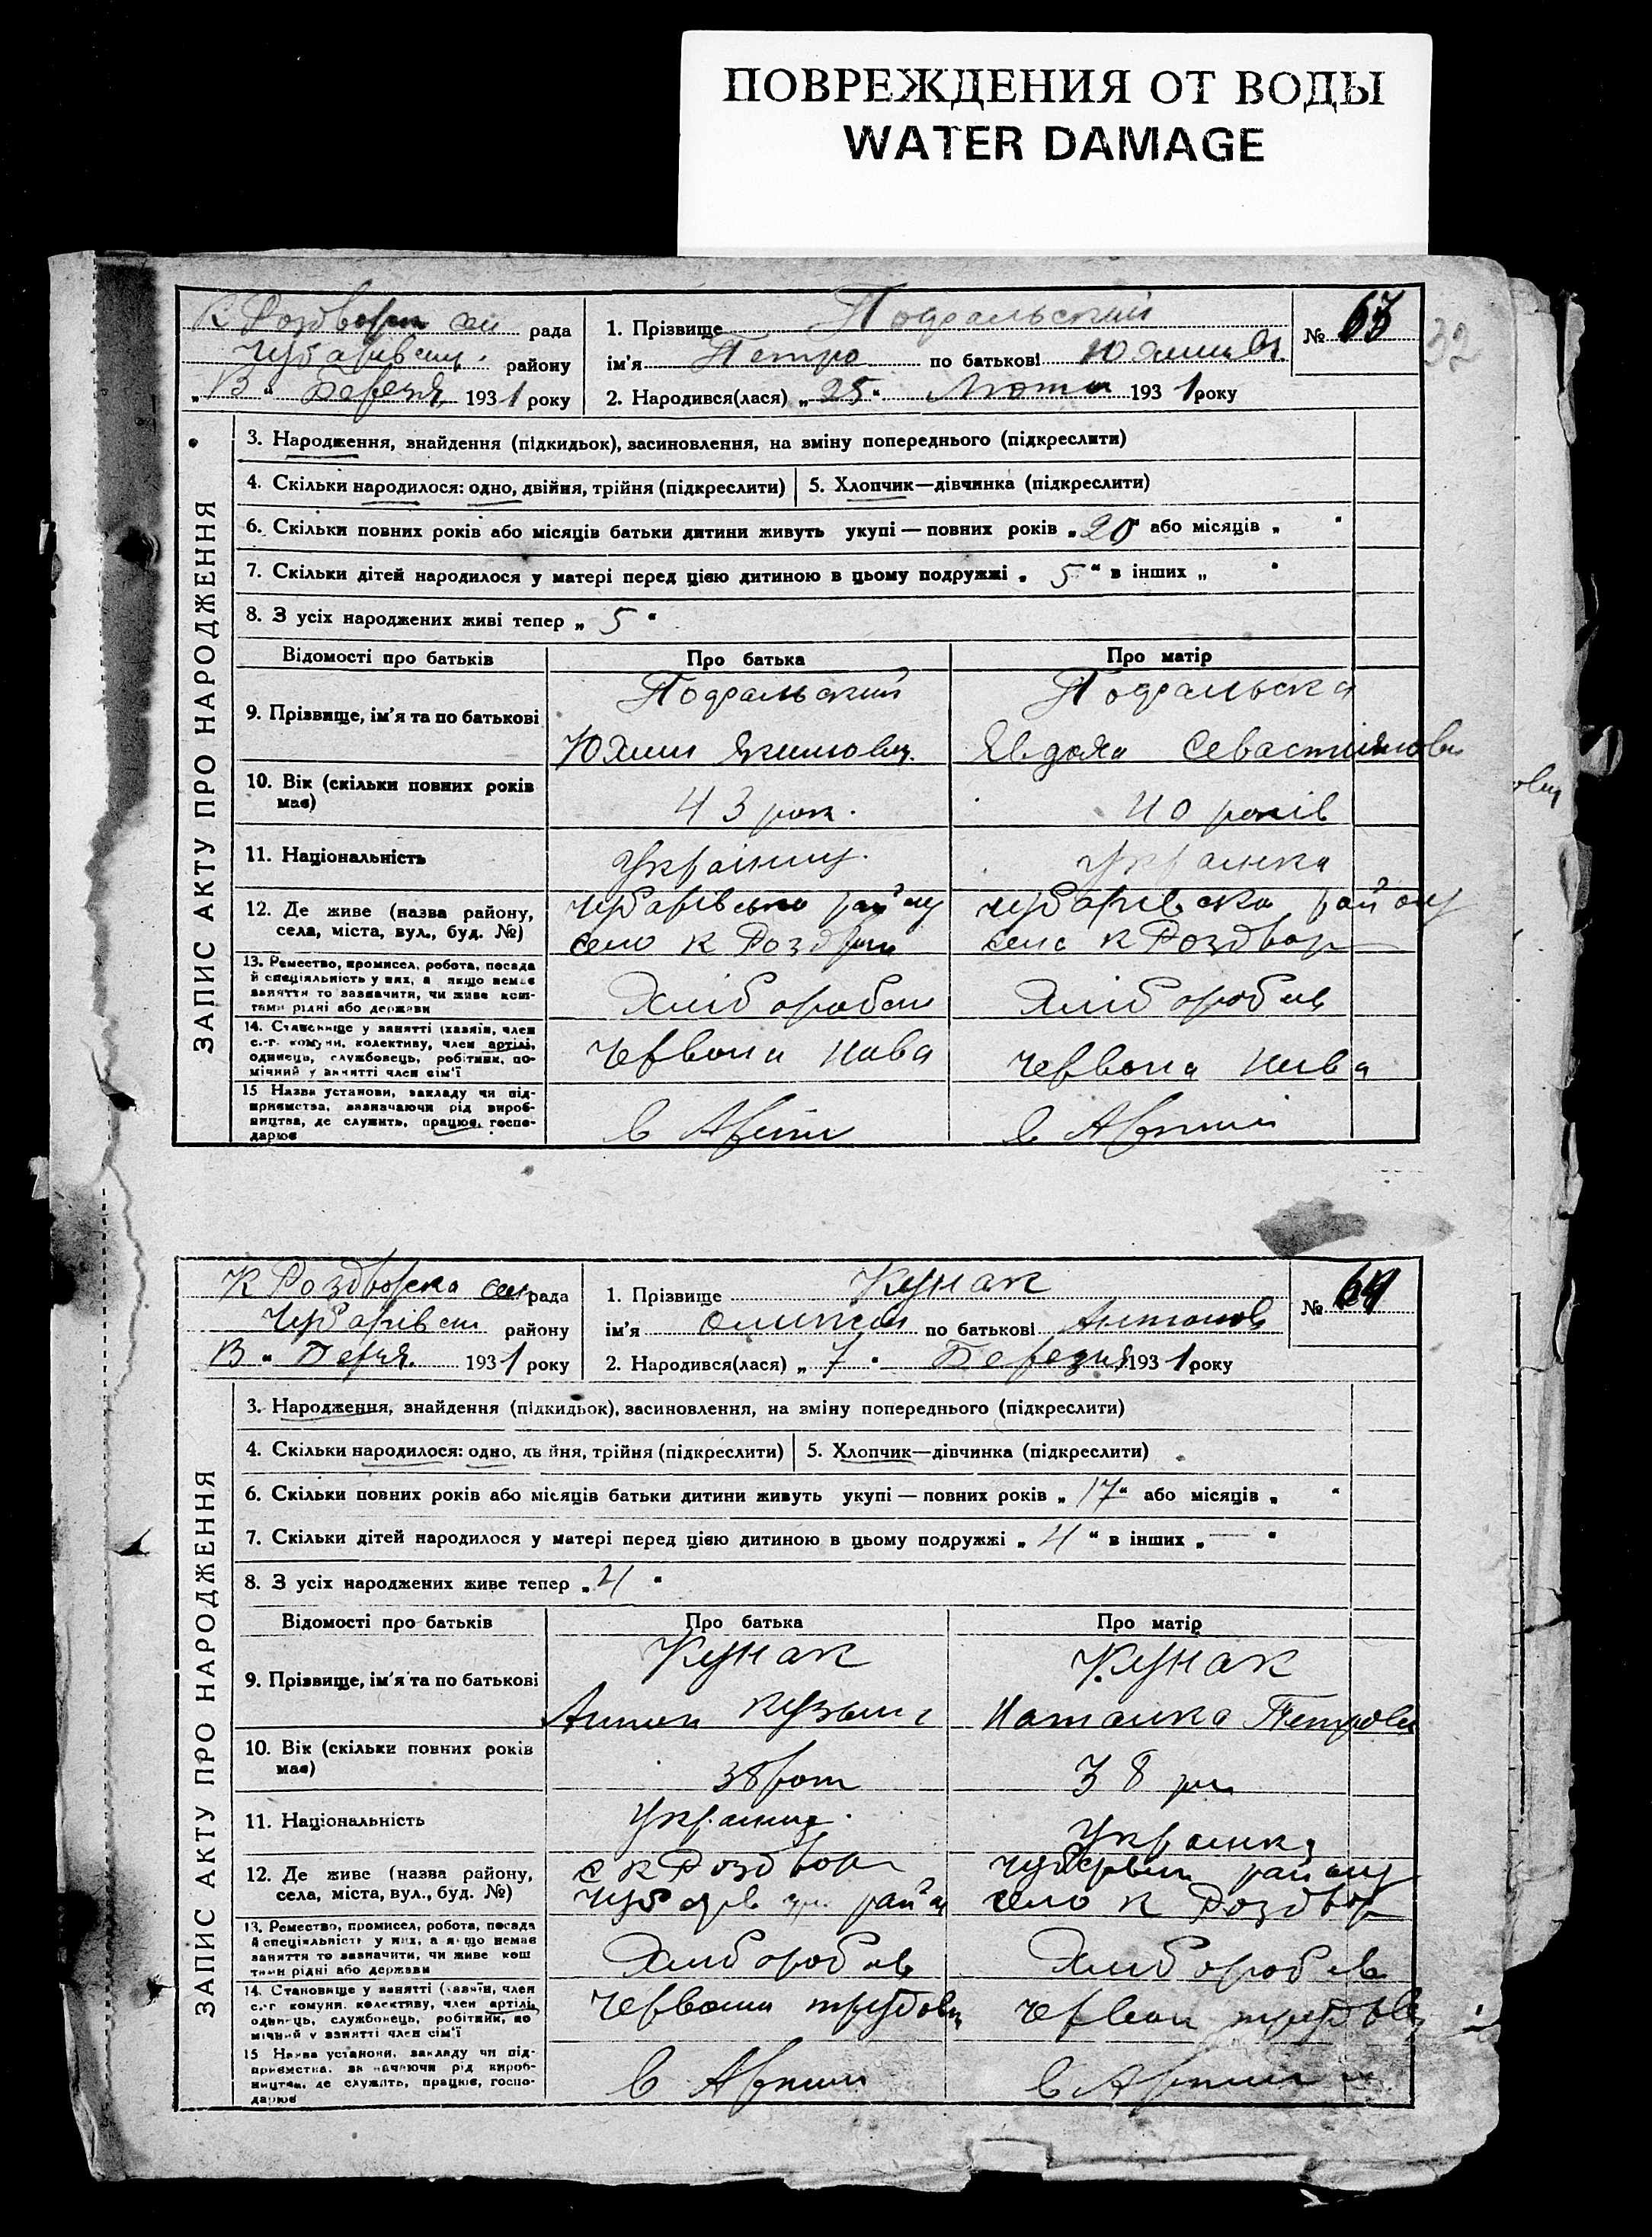 ПОВРЕЖДЕНИЯ ОТ ВОДЫ
WATER DAMAGE
32
К Роздворск сел рада
Чубарівськ. району
„13“ Березня 1931 року
1. Прізвище Подральский
ім'я Петро по батькові
2. Народився(лася) „25“ Люто 1931 року
№ 63
ЗАПИС АКТУ ПРО НАРОДЖЕННЯ
3. Народження, знайдення (підкидьок), засиновлення, на зміну попереднього (підкреслити)
4. Скільки народилося: одно, двійня, трійня (підкреслити)
5. Хлопчик—дівчинка (підкреслити)
6. Скільки повних років або місяців батьки дитини живуть укупі — повних років „20“ або місяців „ “
7. Скільки дітей народилося у матері перед цією дитиною в цьому подружжі „5“ в інших „ “
8. З усіх народжених живі тепер „5“
Відомості про батьків
Про батька
Про матір
9. Прізвище, ім'я та по батькові
Подральский
Подральска
10. Вік (скільки повних років має)
43 рок.
40 років
11. Національність
Українец.
Українка
12. Де живе (назва району, села, міста, вул., буд. №)
Чубарівсько району
село К Роздвор
Чубарівска району
село К Роздвор
13. Ремество, промисел, робота, посада
й спеціяльність у них, а якщо немає
заняття то зазначити, чи живе кош-
тами рідні або держави
Хліборобсш
Хлібороб
14. Становище у занятті (хазяїн, член
с.-г. комуни, колективу, член артілі,
одинець, службовець, робітник, по-
мічний у занятті член сім'ї
Червона Нива
Червона Нива
15 Назва установи, закладу чи під-
приємства, зазначаючи рід вироб-
ництва, де служить, працює, госпо-
дарює
в Артілі
в Артілі
К Роздворска сел рада
Чубарівськ району
13 “ Берзня. 1931 року
1. Прізвище Кунак
ім'я Олексій по батькові Антонов
2. Народився(лася) „7“ Березня 1931 року
№ 64
ЗАПИС АКТУ ПРО НАРОДЖЕННЯ
3. Народження, знайдення (підкидьок), засиновлення, на зміну попереднього (підкреслити)
4. Скільки народилося: одно, двійня, трійня (підкреслити)
5. Хлопчик—дівчинка (підкреслити)
6. Скільки повних років або місяців батьки дитини живуть укупі — повних років „17“ або місяців „ “
7. Скільки дітей народилося у матері перед цією дитиною в цьому подружжі „4“ в інших „—“
8. З усіх народжених живе тепер „4“
Відомості про батьків
Про батька
Про матір
9. Прізвище, ім'я та по батькові
Кунак
Антон Кузьмич
Кунак
Наталка Петровн
10. Вік (скільки повних років має)
38 рок
38 рок
11. Національність
Українец.
Українка
12. Де живе (назва району, села, міста, вул., буд. №)
с К Роздвор
Чубарівськ. район
Чубарівськ району
село К Роздвор
13. Ремество, промисел, робота, посада
й спеціяльність у них, а якщо немає
заняття то зазначити, чи живе кош
тами рідні або держави
Хлібороб
Хлібороб
14. Становище у занятті (хазяїн, член
с.-г. комуни, колективу, член артілі,
одинець, службовець, робітник, по
мічний у занятті член сім'ї
Червоний трудовик
Червон трудовик
15 Назва установи, закладу чи під-
приємства, зазначаючи рід вироб-
ництва, де служить, працює, госпо-
дарює
в Артілі
в Артілі